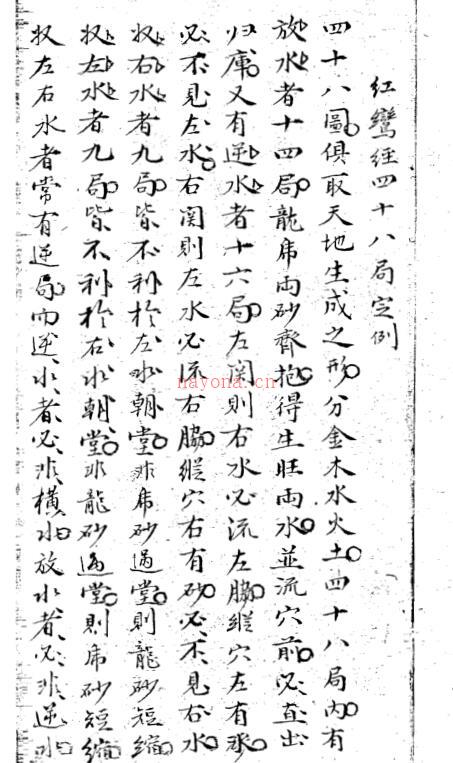 红鸞经四十八局定例
四十八圖俱取天地生成之形分金木水火土四十八局內有
放水者十四局龍虎両砂齊抱得生旺両水並流穴前必直出
归庫又有逆水者十六局左関則右水必流左脇縱穴左有砂
必不見左水右関則左水必流右脇縱穴右有砂必不見右水
収右水者九局皆不利於左水朝堂非虎砂過堂則龍砂短縮
収左水者九局皆不利於右水朝堂非龍砂過堂則虎砂短縮
収左右水者常有逆局而逆水者必非橫水放水者必非逆水
nayona.cn